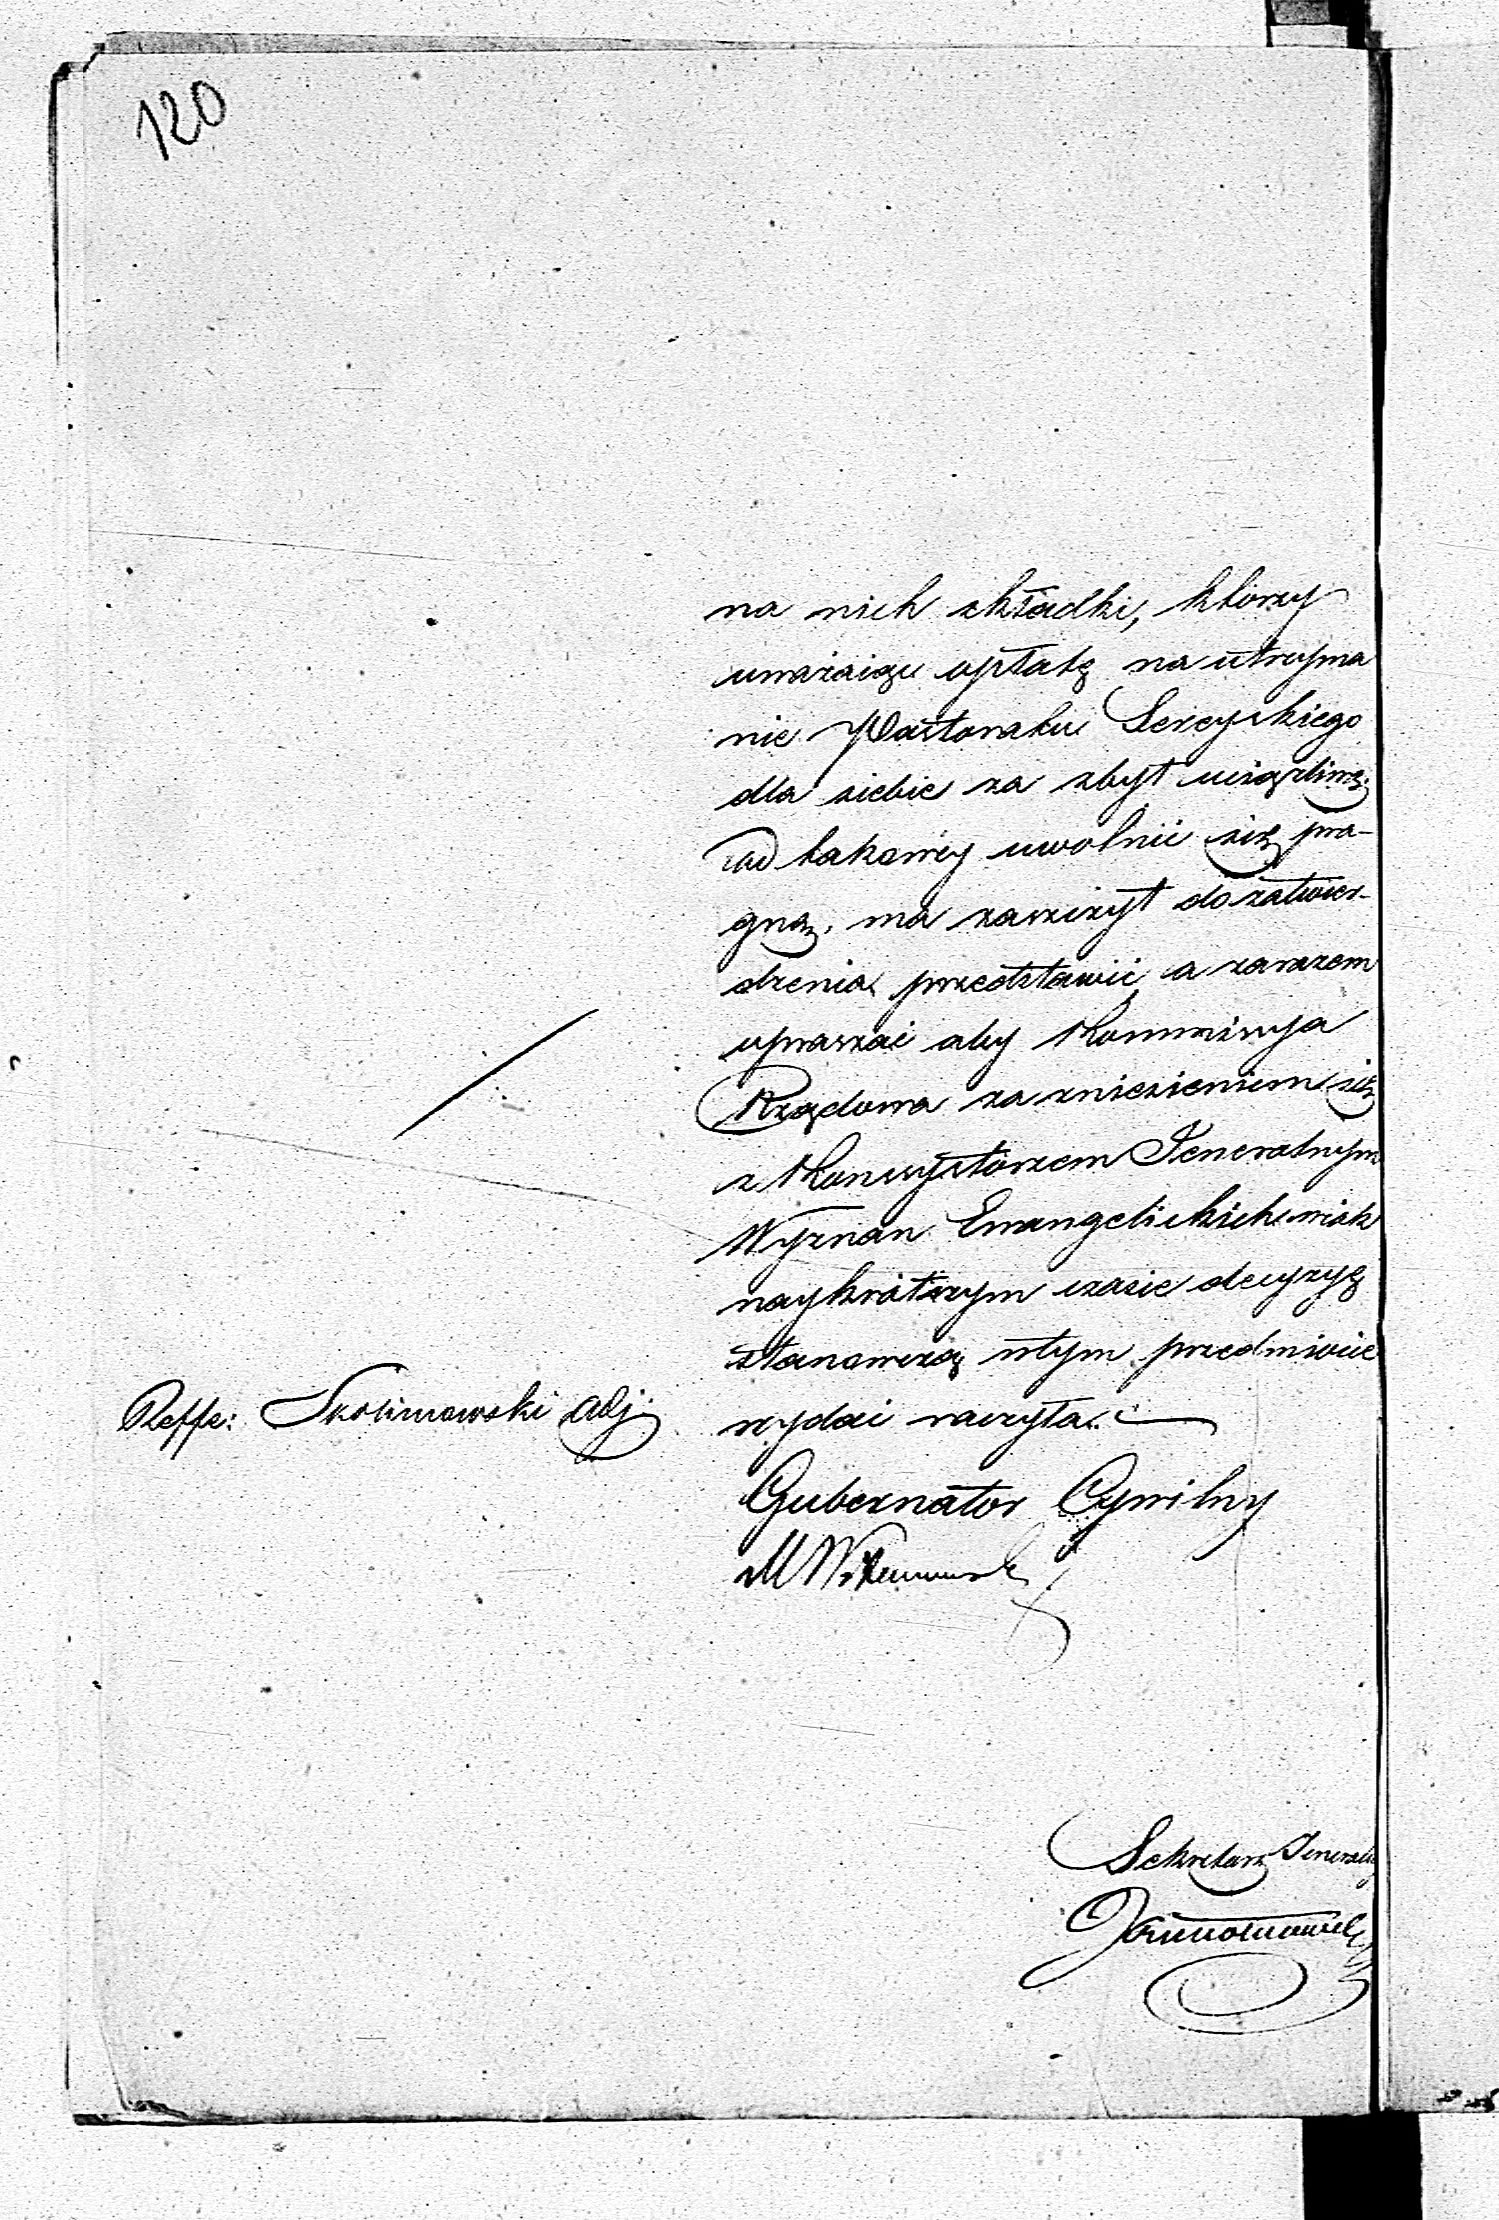 120
na nich składki, którzy
uważaiąc opłatę na utrzyma
nie Pastoratu Sereyskiego
dla siebie za zbyt uciążliwą,
od takowéy uwolnić się pra-
gną, ma zaszczyt do zatwier-
dzenia przedstawić, a zarazem
upraszać aby Kommissya
Rządowa za zniesieniem się
z Konsystorzem Generalnym
Wyznań Ewangelickich w iak
naykrótszym czasie decyzyę
stanowczą w tym przedmiocie
wydać raczyła.
Reffe: Skolimowski Adj:
Gubernator Cywilny
Sekretarz Jeneralny